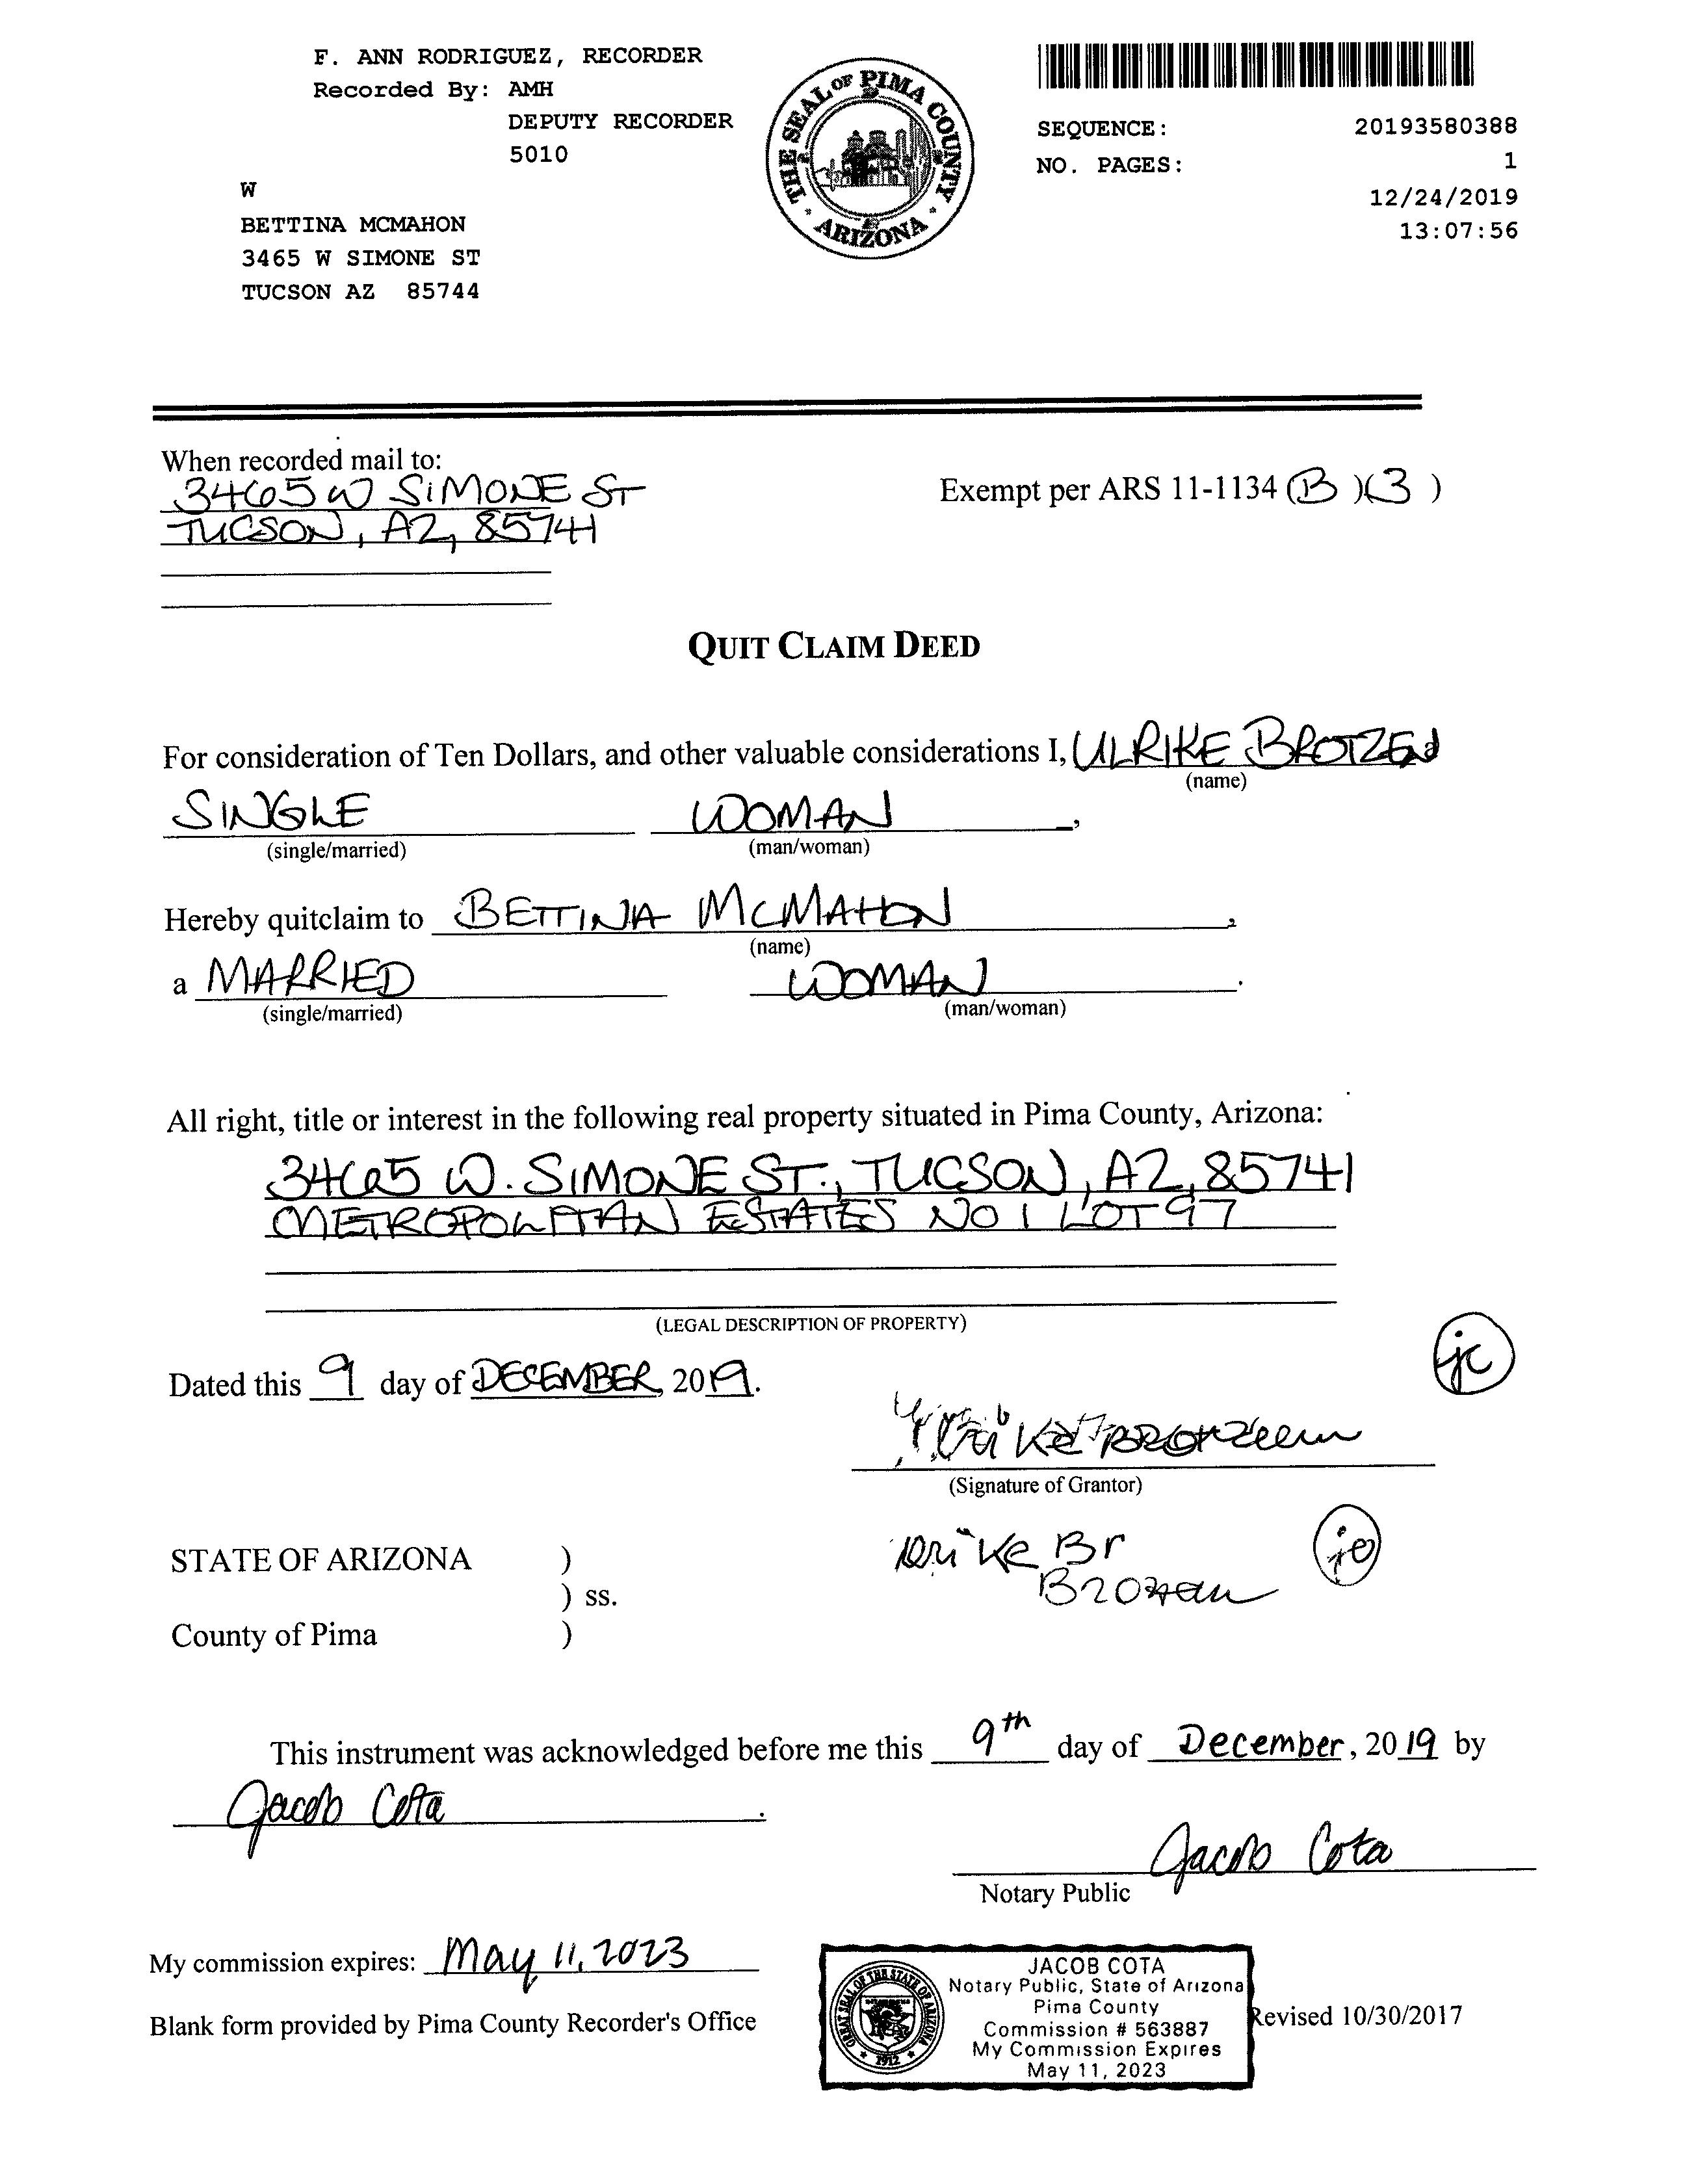 F. ANN RODRIGUEZ, RECORDER
Recorded By: AMH
DEPUTY RECORDER
5010
W
BETTINA MCMAHON
3465 W SIMONE ST
TUCSON AZ 85744
THE SEAL OF PIMA COUNTY
ARIZONA
SEQUENCE: 20193580388
NO. PAGES: 1
12/24/2019
13:07:56
When recorded mail to:
3465 W SIMONE ST
TUCSON, AZ, 85741
Exempt per ARS 11-1134 (B)(3)
QUIT CLAIM DEED
For consideration of Ten Dollars, and other valuable considerations I, ULRIKE BROTZEN a
(name)
SINGLE WOMAN,
(single/married) (man/woman)
Hereby quitclaim to BETTINA MCMAHON,
(name)
a MARRIED WOMAN.
(single/married) (man/woman)
All right, title or interest in the following real property situated in Pima County, Arizona:
3465 W. SIMONE ST., TUCSON, AZ, 85741
METROPOLITAN ESTATES NO 1 LOT 97
(LEGAL DESCRIPTION OF PROPERTY)
jc
Dated this 9 day of DECEMBER, 2019.
(Signature of Grantor)
Br
STATE OF ARIZONA )
) ss.
County of Pima )
This instrument was acknowledged before me this 9th day of December, 2019 by
Jacob Cota.
Jacob Cota
Notary Public
My commission expires: May 11, 2023
Blank form provided by Pima County Recorder's Office
GREAT SEAL OF THE STATE OF ARIZONA
1912
JACOB COTA
Notary Public, State of Arizona
Pima County
Commission # 563887
My Commission Expires
May 11, 2023
Revised 10/30/2017